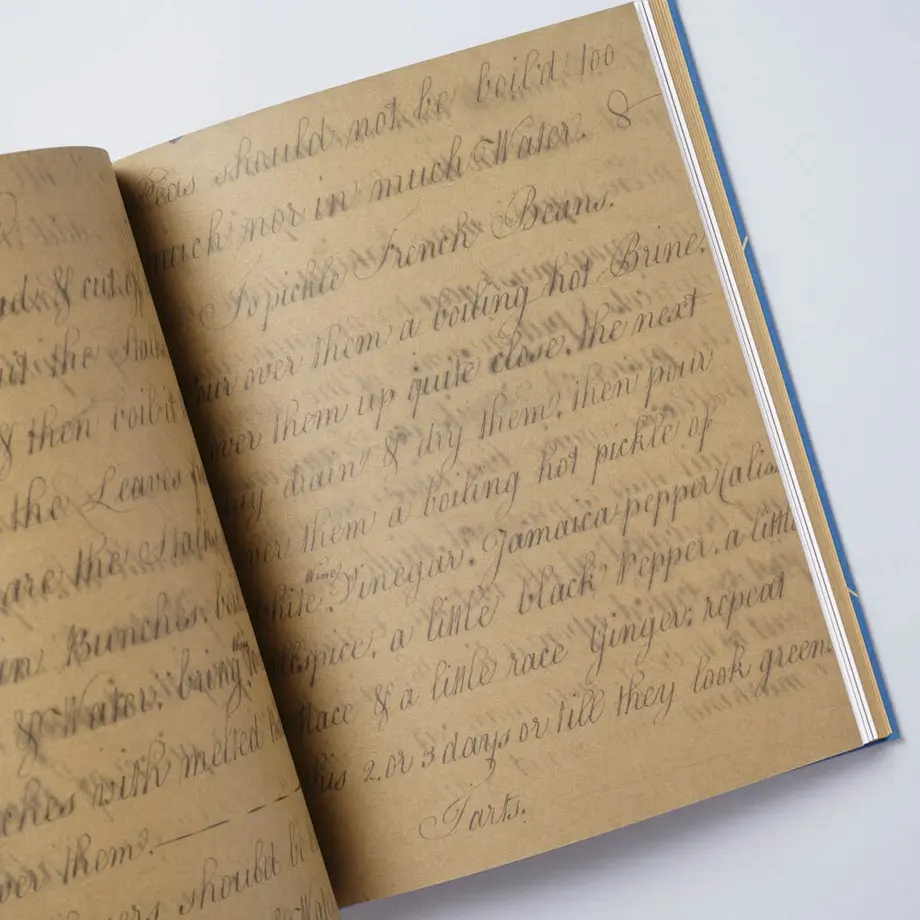 nd, & cut off
the Stalk
& then boil it
the Leaves
are the Stalk
in Bunches,
& Water, bring
ches with melted
over them.
should be
Peas should not be boil'd too
much nor in much Water. &
To pickle French Beans.
pour over them a boiling hot Brine,
cover them up quite close, the next
day drain & dry them, then pour
over them a boiling hot pickle of
white Wine Vinegar, Jamaica pepper (alias
Allspice, a little black Pepper, a little
Mace & a little race Ginger; repeat
this 2, or 3 days or till they look green.
Tarts.